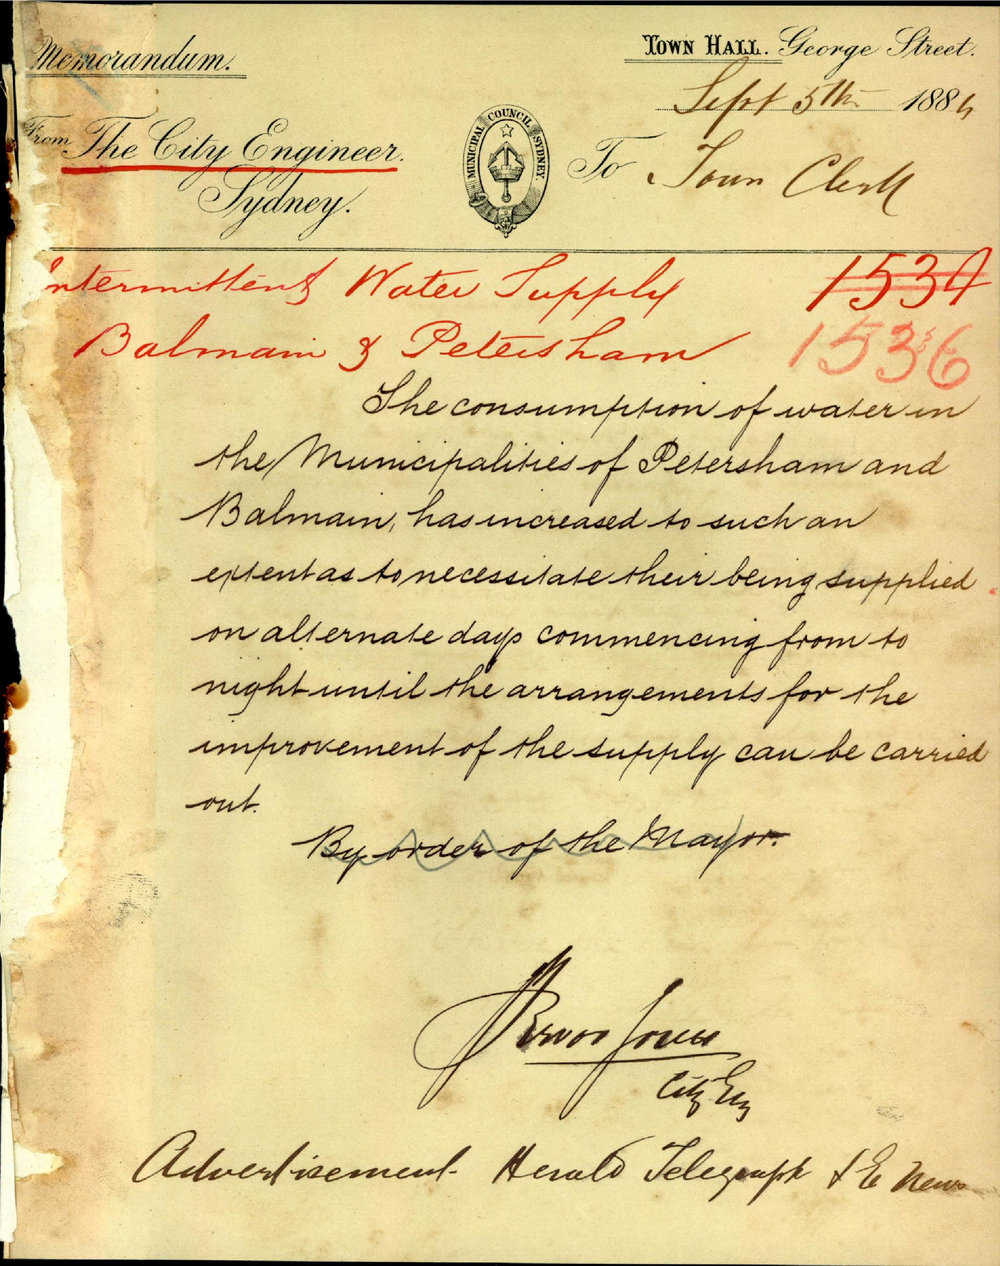 Memorandum.
TOWN HALL. George Street.
Sept 5th 1884
From The City Engineer.
Sydney.
MUNICIPAL COUNCIL SYDNEY
To Town Clerk
Intermittent Water Supply 1534
Balmain & Petersham 1536
The consumption of water in
the Municipalities of Petersham and
Balmain, has increased to such an
extent as to necessitate their being supplied
on alternate days commencing from to
night until the arrangements for the
improvement of the supply can be carried
out.
By order of the Mayor.
Trevor Jones
City Eng
Advertisement Herald Telegraph & E News